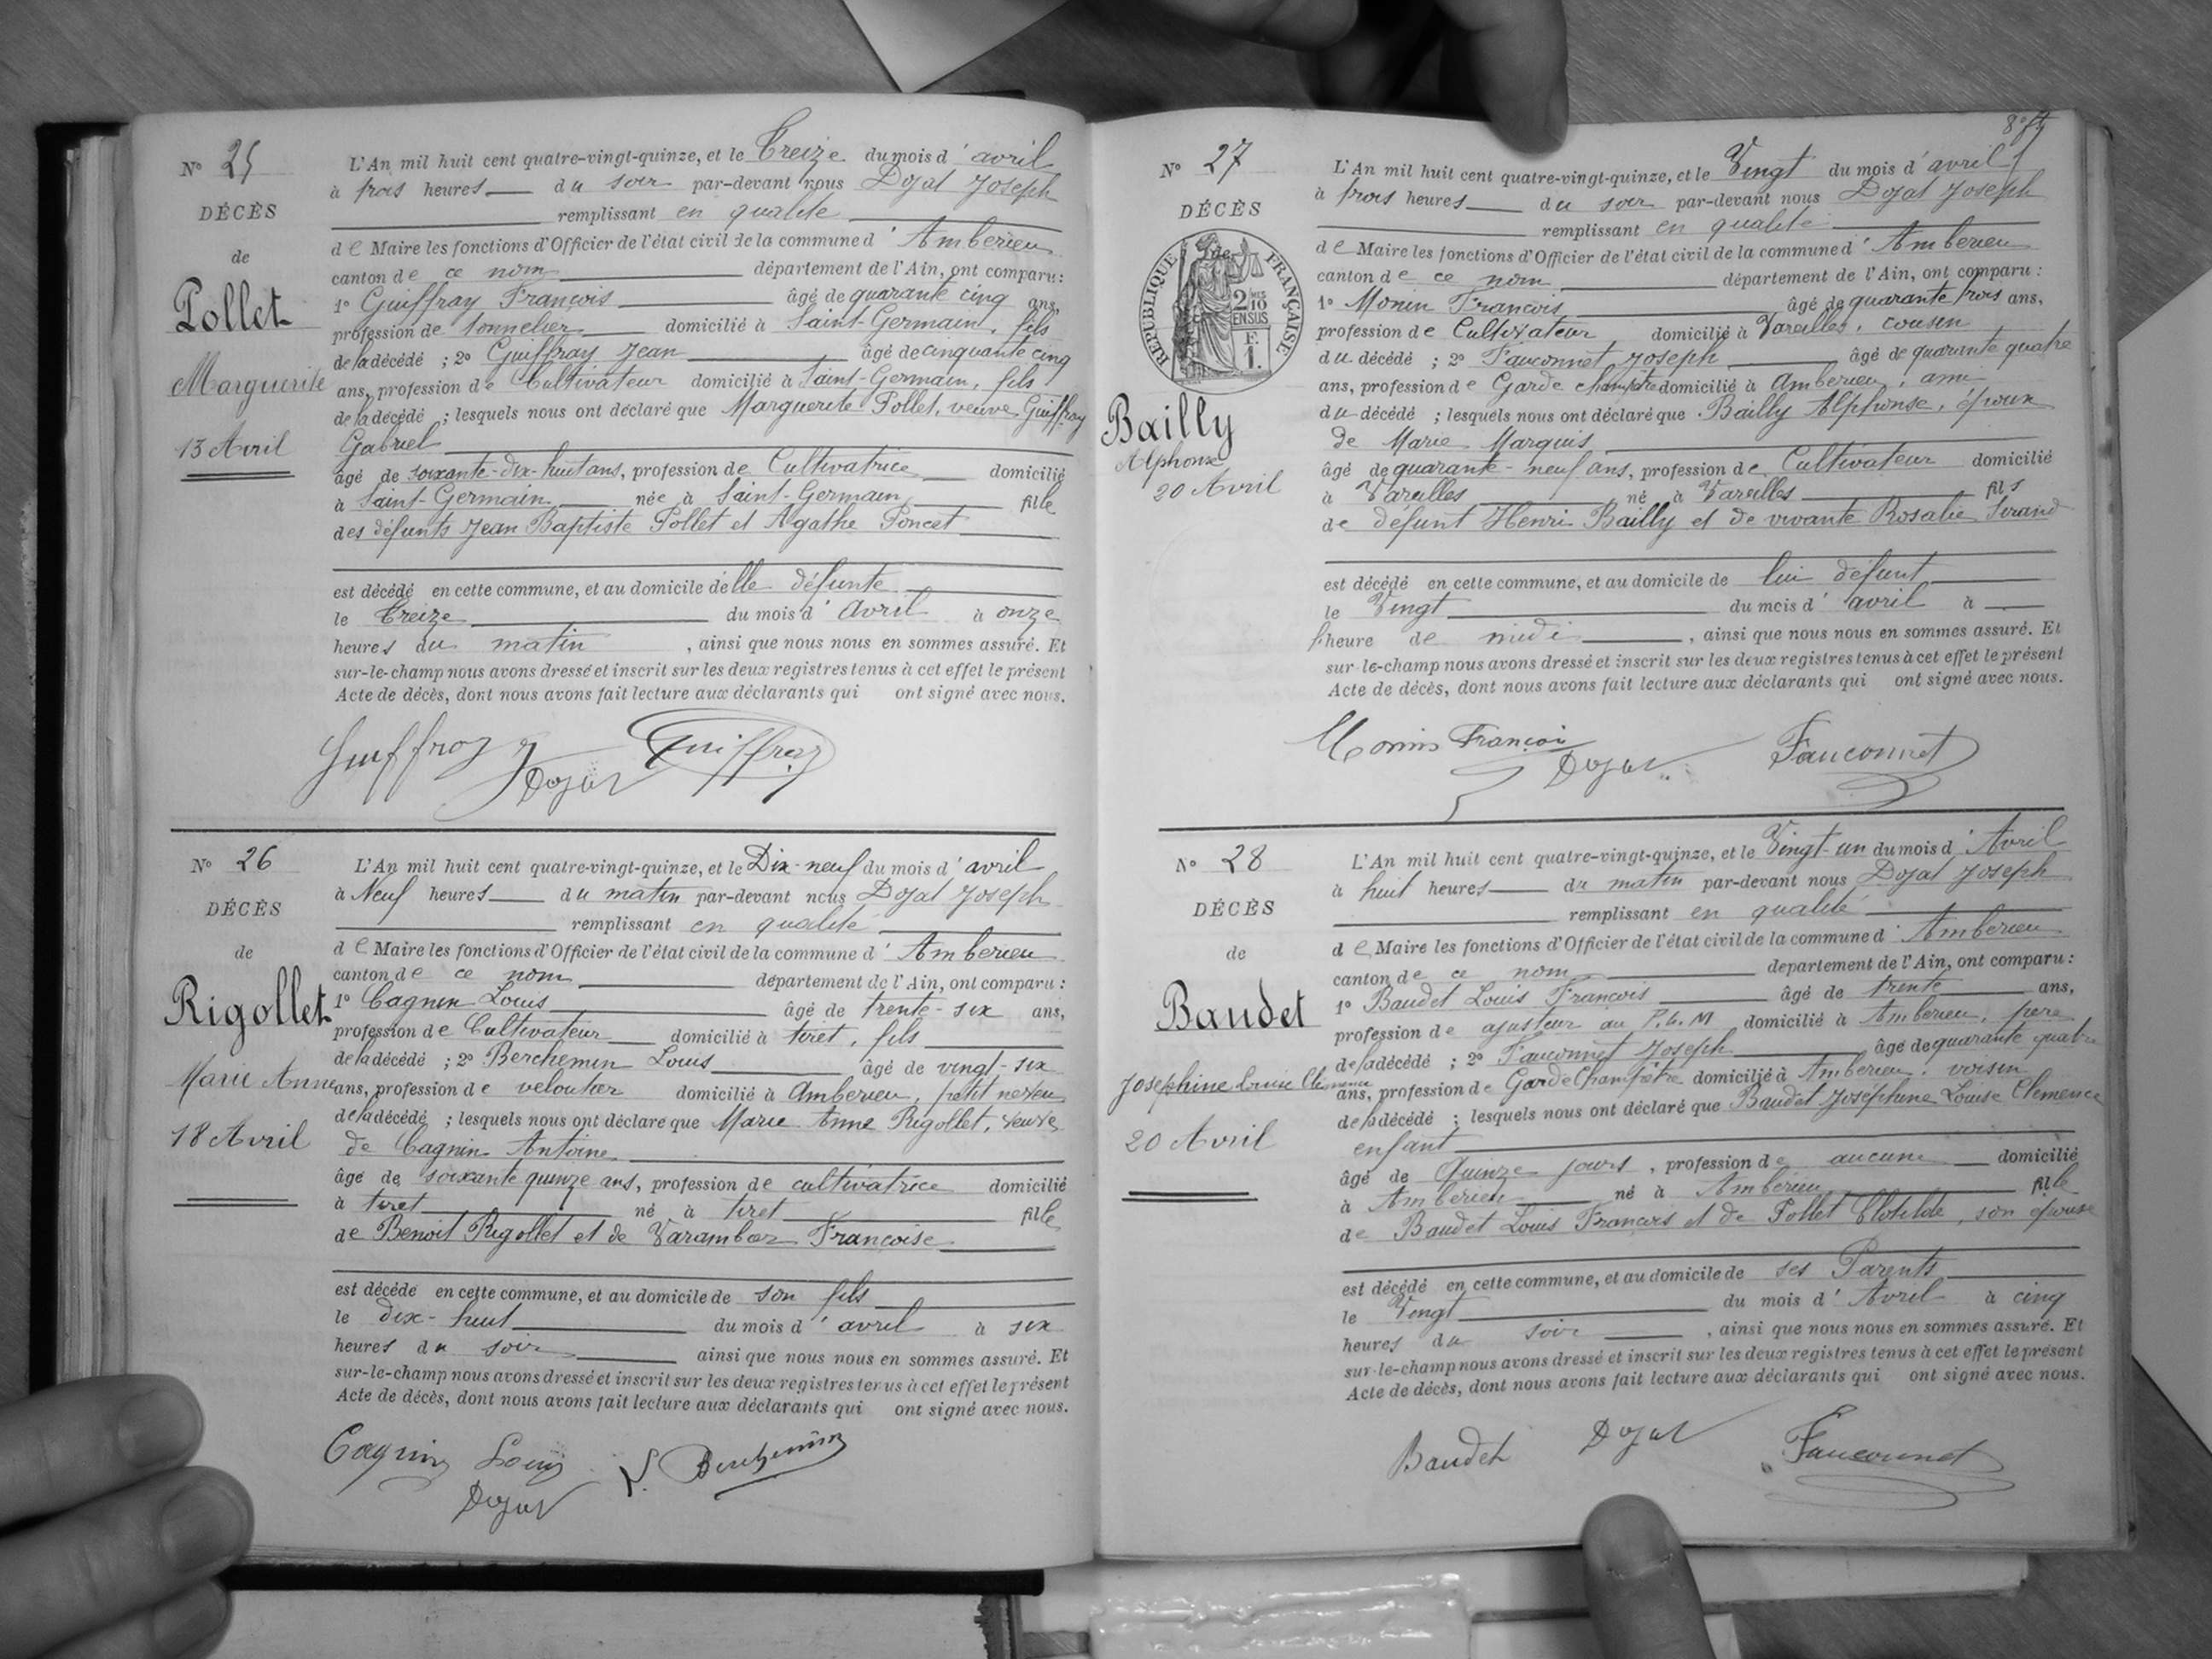 N° 25
DÉCÈS
de
Pollet
Marguerite
13 Avril
L'An mil huit cent quatre-vingt-quinze, et le Treize du mois d'avril
à trois heures du soir par-devant nous Dojat Joseph
remplissant en qualité
de Maire les fonctions d'Officier de l'état civil de la commune d'Amberieu
canton de ce nom département de l'Ain, ont comparu :
1° Guiffray François âgé de quarante cinq ans,
profession de tonnelier domicilié à Saint-Germain, fils
de la décédé ; 2° Guiffray Jean âgé de cinquante cinq
ans, profession de Cultivateur domicilié à Saint-Germain, fils
de la décédé ; lesquels nous ont déclaré que Marguerite Pollet, veuve Guiffray
Gabriel
âgé de soixante-dix-huit ans, profession de Cultivatrice domicilié
à Saint-Germain née à Saint-Germain fille
des défunts Jean Baptiste Pollet et Agathe Poncet
est décédé en cette commune, et au domicile d'elle défunte
le Treize du mois d'Avril à onze
heures du matin, ainsi que nous nous en sommes assuré. Et
sur-le-champ nous avons dressé et inscrit sur les deux registres tenus à cet effet le présent
Acte de décès, dont nous avons fait lecture aux déclarants qui ont signé avec nous.
Guiffray J Guiffray
Dojat
N° 26
DÉCÈS
de
Rigollet
Marie Anne
18 Avril
L'An mil huit cent quatre-vingt-quinze, et le Dix-neuf du mois d'avril
à Neuf heures du matin par-devant nous Dojat Joseph
remplissant en qualité
de Maire les fonctions d'Officier de l'état civil de la commune d'Amberieu
canton de ce nom département de l'Ain, ont comparu :
1° Cagnin Louis âgé de trente-six ans,
profession de Cultivateur domicilié à tiret, fils
de la décédé ; 2° Berchemin Louis âgé de vingt-six
ans, profession de veloutier domicilié à Amberieu, petit neveu
de la décédé ; lesquels nous ont déclaré que Marie Anne Rigollet, veuve
de Cagnin Antoine
âgé de soixante quinze ans, profession de cultivatrice domicilié
à tiret né à tiret fille
de Benoit Rigollet et de Varambon Françoise
est décédé en cette commune, et au domicile de son fils
le dix-huit du mois d'avril à six
heures du soir ainsi que nous nous en sommes assuré. Et
sur-le-champ nous avons dressé et inscrit sur les deux registres tenus à cet effet le présent
Acte de décès, dont nous avons fait lecture aux déclarants qui ont signé avec nous.
Cagnin Louis L. Berchemin
Dojat
N° 27
DÉCÈS
de
RÉPUBLIQUE FRANÇAISE
2/10 EN SUS
F. 1.
Bailly
Alphonse
20 Avril
L'An mil huit cent quatre-vingt-quinze, et le Vingt du mois d'avril
à trois heures du soir par-devant nous Dojat Joseph
remplissant en qualité
de Maire les fonctions d'Officier de l'état civil de la commune d'Amberieu
canton de ce nom département de l'Ain, ont comparu :
1° Monin François âgé de quarante trois ans,
profession de Cultivateur domicilié à Vareilles, cousin
du décédé ; 2° Fauconnet Joseph âgé de quarante quatre
ans, profession de Garde champêtre domicilié à Amberieu, ami
du décédé ; lesquels nous ont déclaré que Bailly Alphonse, époux
de Marie Marquis
âgé de quarante-neuf ans, profession de Cultivateur domicilié
à Vareilles né à Vareilles fils
de défunt Henri Bailly et de vivante Rosalie Sirand
est décédé en cette commune, et au domicile de lui défunt
le Vingt du mois d'avril à
l'heure de midi, ainsi que nous nous en sommes assuré. Et
sur-le-champ nous avons dressé et inscrit sur les deux registres tenus à cet effet le présent
Acte de décès, dont nous avons fait lecture aux déclarants qui ont signé avec nous.
Monin Françoi Dojat Fauconnet
N° 28
DÉCÈS
de
Baudet
Joséphine Louise Clemence
20 Avril
L'An mil huit cent quatre-vingt-quinze, et le Vingt-un du mois d'Avril
à huit heures du matin par-devant nous Dojat Joseph
remplissant en qualité
de Maire les fonctions d'Officier de l'état civil de la commune d'Amberieu
canton de ce nom département de l'Ain, ont comparu :
1° Baudet Louis François âgé de trente ans,
profession de ajusteur au P.L.M domicilié à Amberieu, père
de la décédé ; 2° Fauconnet Joseph âgé de quarante quatre
ans, profession de Garde Champêtre domicilié à Amberieu, voisin
de la décédé ; lesquels nous ont déclaré que Baudet Joséphine Louise Clemence
enfant
âgé de Quinze jours, profession de aucune domicilié
à Amberieu né à Amberieu fille
de Baudet Louis François et de Pollet Clotilde, son épouse
est décédé en cette commune, et au domicile de ses Parents
le Vingt du mois d'Avril à cinq
heures du soir, ainsi que nous nous en sommes assuré. Et
sur-le-champ nous avons dressé et inscrit sur les deux registres tenus à cet effet le présent
Acte de décès, dont nous avons fait lecture aux déclarants qui ont signé avec nous.
Baudet Dojat Fauconnet